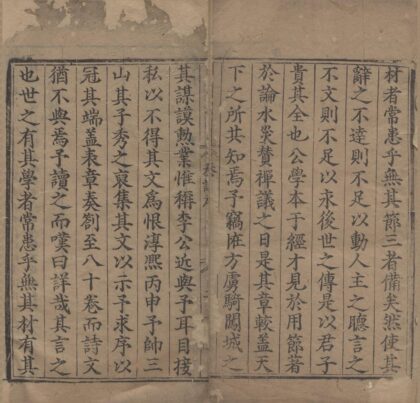 材者常患乎無其節三者備矣然使其
辭之不達則不足以動人主之聽言之
不文則不足以永後世之傳是以君子
貴其全也公學本于經才見於用節著
於論水災贊禪議之日是其章較蓋天
下之所其知焉予竊恠方虜騎闖城之
其謀謨勲業惟稱李公近與予耳目接
私以不得其文為恨淳熈丙申予帥三
山其子秀之裒集其文以示予求序以
冠其端盖表章奏劄至八十卷而詩文
猶不與焉予讀之而嘆曰詳哉其言之
也世之有其學者常患乎無其材有其